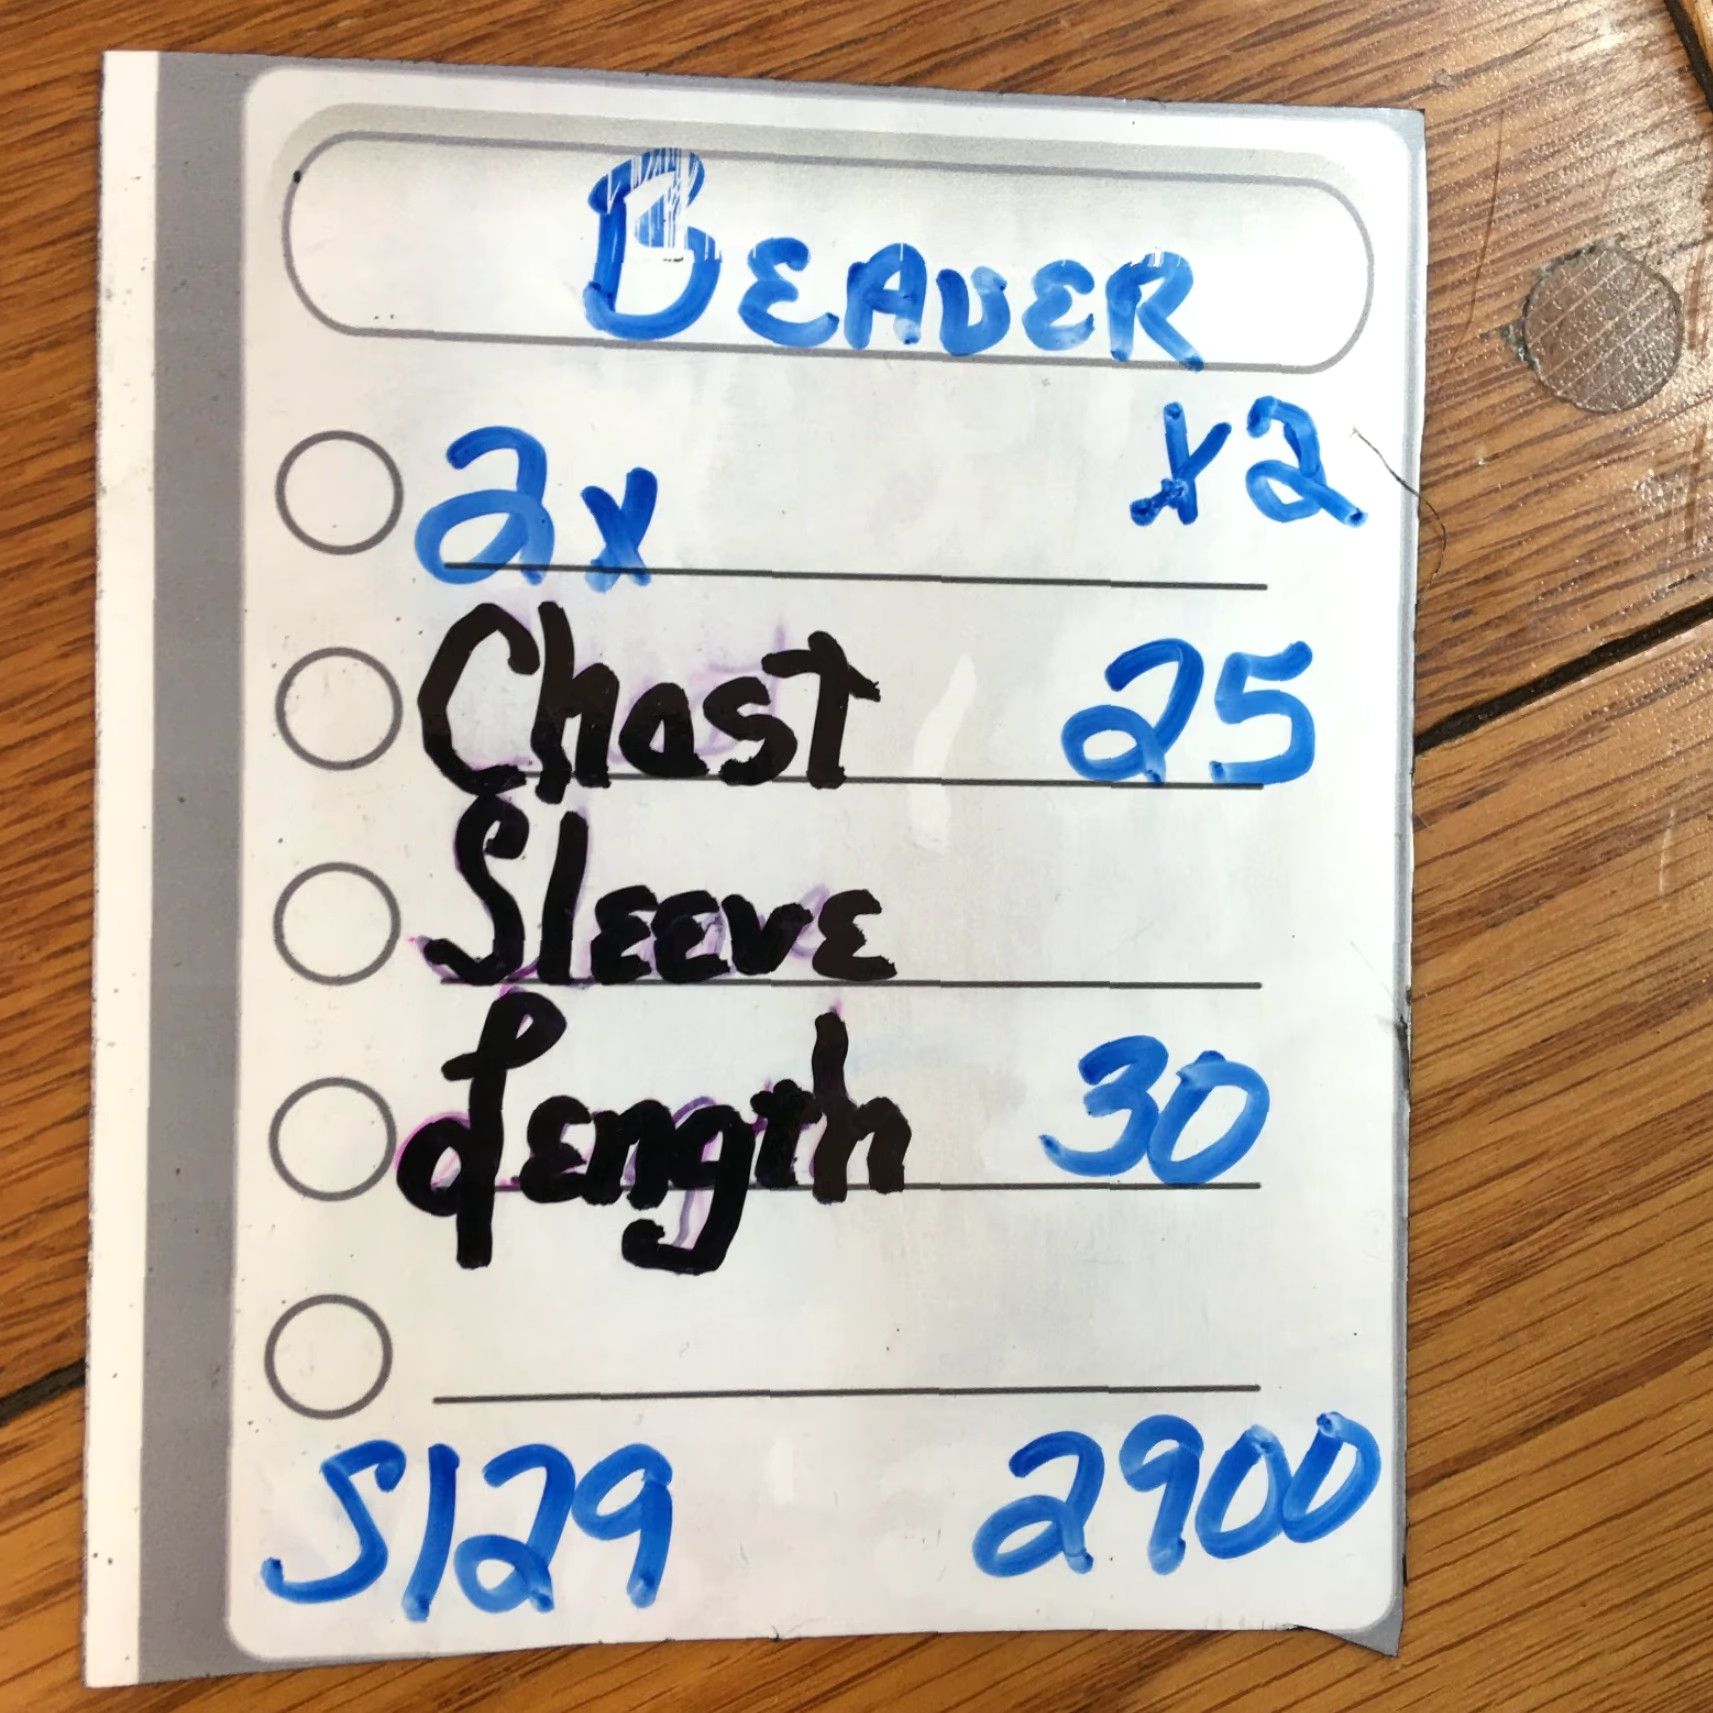 BEAVER
2x x2
Chast 25
Sleeve
Length 30
S129 2900